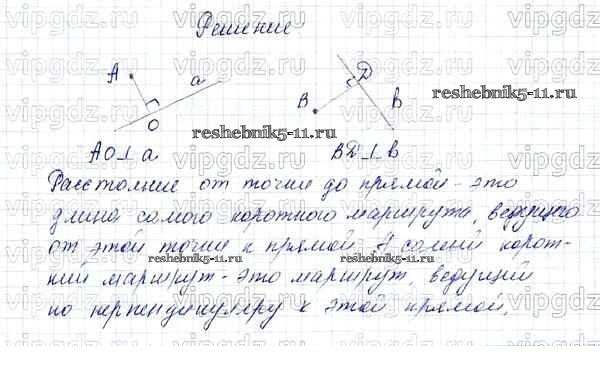 Решение
А а
О
В D в
reshebnik5-11.ru
reshebnik5-11.ru
АО⊥а ВD⊥в
Расстояние от точки до прямой - это
длина самого короткого маршрута, ведущего
от этой точки к прямой. А самый корот-
кий маршрут - это маршрут, ведущий
по перпендикуляру к этой прямой.
reshebnik5-11.ru
vipgdz.ru